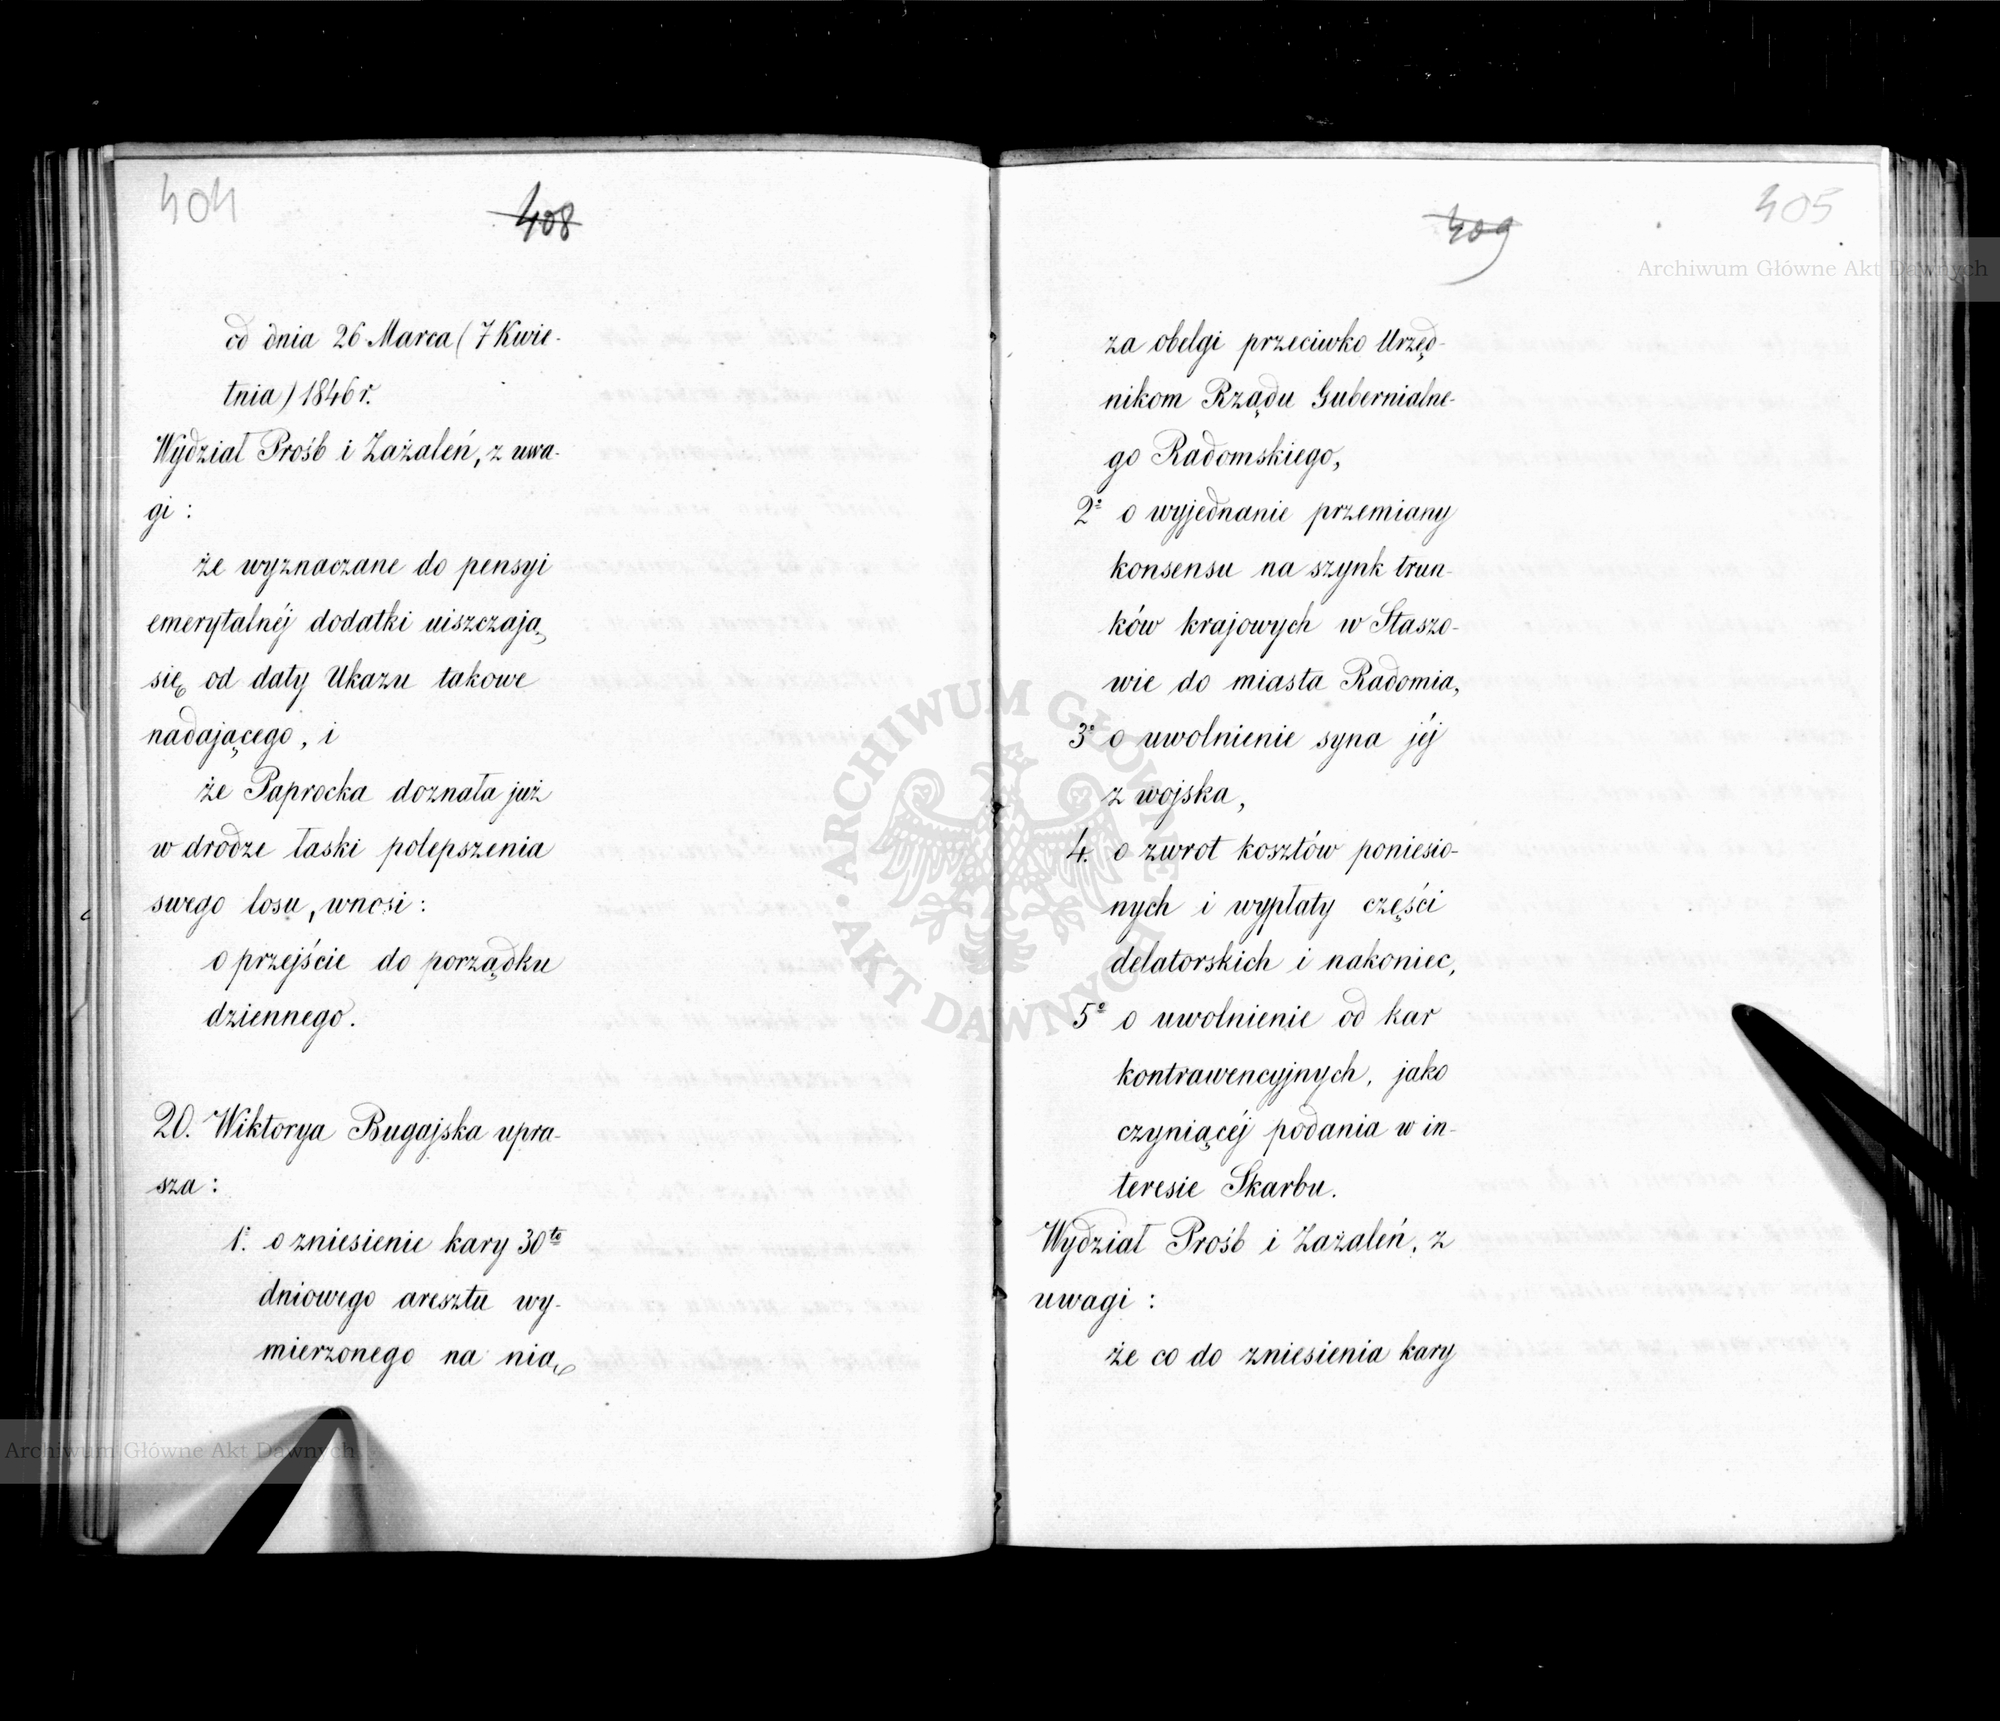 404
408
od dnia 26 Marca (7 Kwie-
tnia) 1846 r.
Wydział Prośb i Zażaleń, z uwa-
gi :
że wyznaczane do pensyi
emerytalnéj dodatki uiszczają
się od daty Ukazu takowe
nadającego, i
że Paprocka doznała już
w drodze łaski polepszenia
swego losu, wnosi :
o przejście do porządku
dziennego.
20. Wiktorya Bugajska upra-
sza :
1º. o zniesienie kary 30to
dniowego aresztu wy-
mierzonego na nią
405
409
za obelgi przeciwko Urzęd-
nikom Rządu Gubernialne-
go Radomskiego,
2º o wyjednanie przemiany
konsensu na szynk trun-
ków krajowych w Staszo-
wie do miasta Radomia,
3º o uwolnienie syna jéj
z wojska,
4. o zwrot kosztów poniesio-
nych i wypłaty części
delatorskich i nakoniec,
5º o uwolnienie od kar
kontrawencyjnych, jako
czyniącéj podania w in-
teresie Skarbu.
Wydział Prośb i Zażaleń, z
uwagi :
że co do zniesienia kary
Archiwum Główne Akt Dawnych
ARCHIWUM GŁÓWNE • AKT DAWNYCH •
Archiwum Główne Akt Dawnych